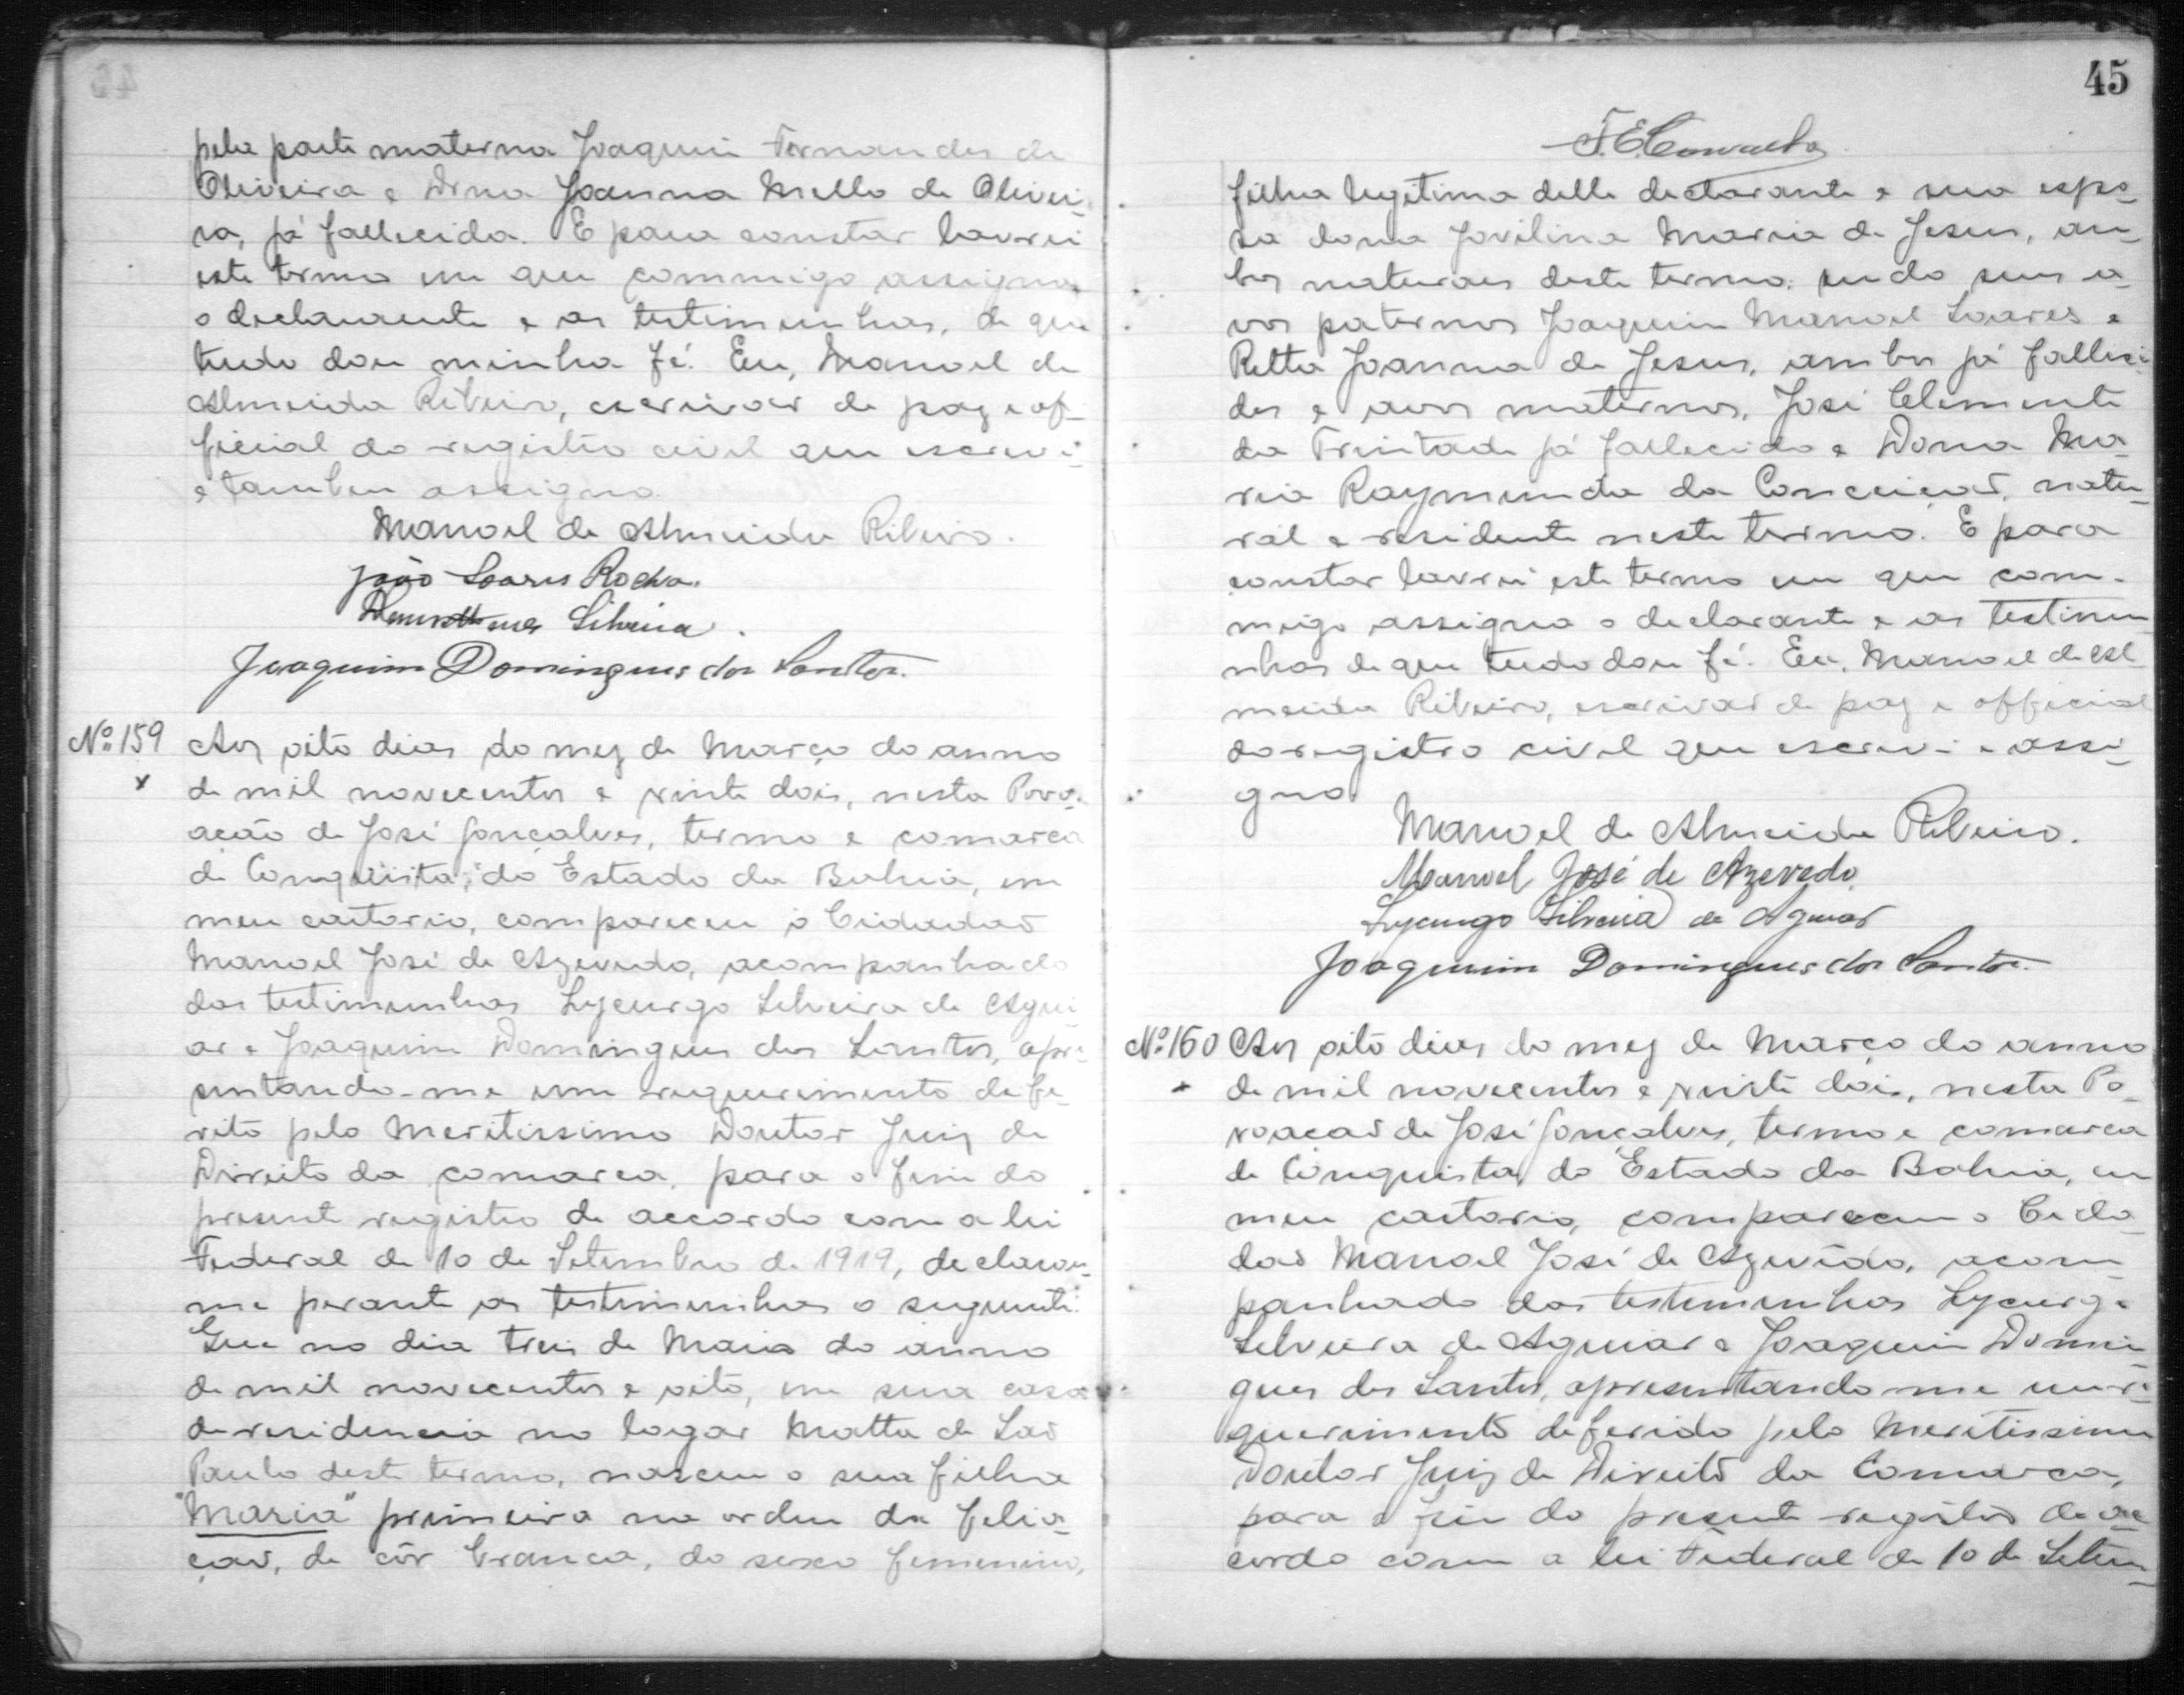 pela parte materna Joaquim Fernandes de
Oliveira e Dona Joanna Mello de Olivei-
ra, já fallecida. E para constar lavrei
este termo em que commigo assigna
o declarante e as testimunhas, de que
tudo dou minha fé. Eu, Manoel de
Almeida Ribeiro, escrivaõ de paz e of-
ficial do registro civil que escrevi
e tambem assigno.
Manoel de Almeida Ribeiro.
João Soares Rocha.
Silveira.
Joaquim Domingues dos Santos.
Nº 159 Aos oito dias do mez de Março do anno
x de mil novecentos e vinte dois, nesta Povo-
ação de José Gonçalves, termo e comarca
de Conquista, do Estado da Bahia, em
meu cartorio, compareceu o Cidadaõ
Manoel José de Azevedo, acompanhado
das testimunhas Lycurgo Silveira de Agui-
ar e Joaquim Domingues dos Santos, apre-
sentando-me um requerimento defe-
rito pelo Meritissimo Doutor Juiz de
Direito da comarca, para o fim do
present registro de accordo com a lei
Federal de 10 de Setembro de 1919, declarou-
me perante as testimunhas o seguinte:
Que no dia treis de Maio do anno
de mil novecentos e oito, em sua casa
de residencia no logar Matta de Saõ
Paulo deste termo, nasceu a sua filha
"Maria" primeira na ordem da filia-
çaõ, de côr branca, do sexo femenino,
45
F. E. Carvalho
filha legitima delle declarante e sua espo-
sa dona Jovilina Maria de Jesus, am-
bos naturaes deste termo, sendo seus a-
vos paternos Joaquim Manoel Soares e
Ritta Joanna de Jesus, ambos já falleci-
dos e avos maternos, José Clemente
da Trindade já fallecido e Dona Ma-
ria Raymunda da Conceiçaõ, natu-
ral e residente neste termo. E para
constar lavrei este termo em que com-
migo assigna o declarante e as testimu-
nhas de que tudo dou fé. Eu, Manoel de Al
meida Ribeiro, escrivaõ de paz e official
do registro civil que escrevi e assi-
gno.
Manoel de Almeida Ribeiro.
Manoel José de Azevedo
Lycurgo Silveira de Aguiar
Joaquim Domingues dos Santos.
Nº 160 Aos oito dias do mez de Março do anno
x de mil novecentos e vinte dois, nesta Po-
voacaõ de José Gonçalves, termo e comarca
de Conquista, do Estado da Bahia, em
meu cartorio, compareceu o Cida-
daõ Manoel José de Azevêdo, acom-
panhado das testemunhas Lycurgo
Silveira de Aguiar e Joaquim Domin-
gues dos Santos, apresentando me um re-
querimento deferido pelo Meritissimo
Doutor Juiz de Direito da Comarca,
para o fim do presente registro de ac-
cordo com a lei Federal de 10 de Setem-